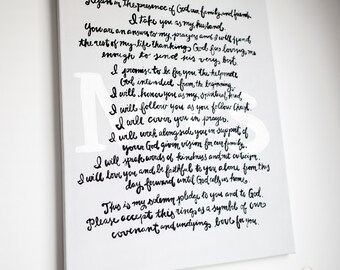 in the presence of God our family and friends
I take you as my husband.
You are an answer to my prayers and I will spend
the rest of my life thanking God for loving me
enough to send me very best.
I promise to be for you the helpmate
God intended from the beginning.
I will honor you as my spiritual head.
I will follow you as you follow Christ.
I will cover you in prayer.
I will work alongside you in support of
your God given vision for our family.
I will speak words of kindness and not criticism.
I will love you and be faithful to you alone from this
day forward until God calls us home.
This is my solemn pledge to you and to God.
Please accept this ring as a symbol of our
covenant and undying love for you.